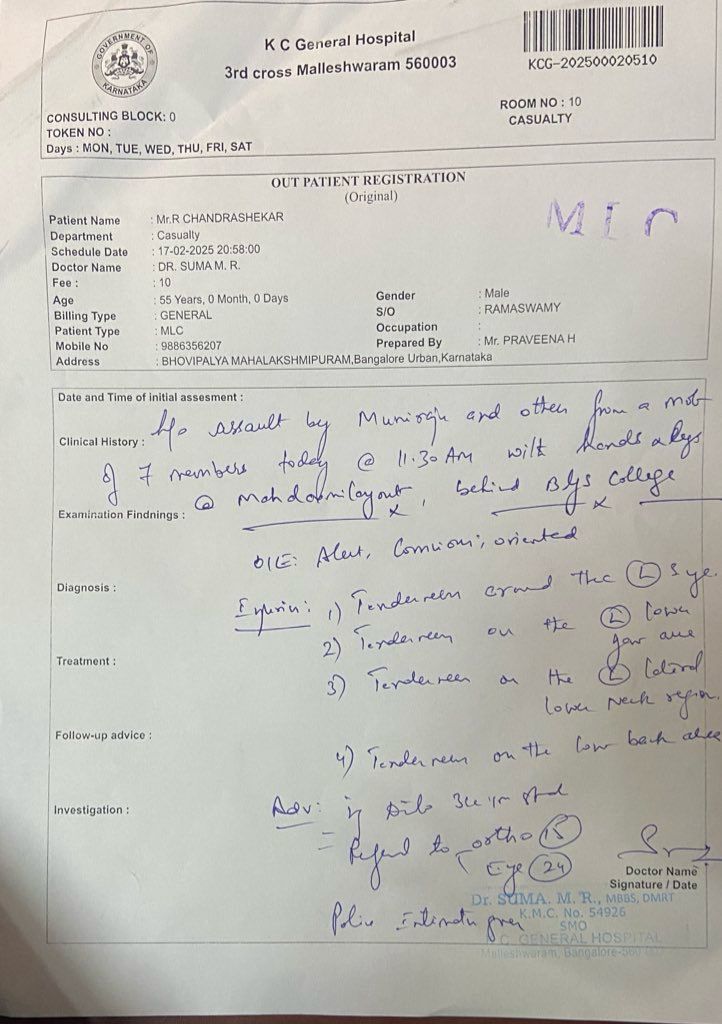 GOVERNMENT OF
KARNATAKA
K C General Hospital
3rd cross Malleshwaram 560003
KCG-202500020510
CONSULTING BLOCK: 0
TOKEN NO :
Days : MON, TUE, WED, THU, FRI, SAT
ROOM NO : 10
CASUALTY
OUT PATIENT REGISTRATION
(Original)
Patient Name : Mr.R CHANDRASHEKAR
Department : Casualty
Schedule Date : 17-02-2025 20:58:00
Doctor Name : DR. SUMA M. R.
Fee : : 10
Age : 55 Years, 0 Month, 0 Days
Gender : Male
Billing Type : GENERAL
S/O : RAMASWAMY
Patient Type : MLC
Occupation :
Mobile No : 9886356207
Prepared By : Mr. PRAVEENA H
Address : BHOVIPALYA MAHALAKSHMIPURAM,Bangalore Urban,Karnataka
Date and Time of initial assesment :
H/o assault by Muniraju and others from a mob
Clinical History :
of 7 members today @ 11.30 AM with hands & legs
@ , behind College
Examination Findnings :
O/E: Alert, Conscious, oriented
Diagnosis :
1) Tenderness around the (L) eye.
2) Tenderness on the (L) lower
Treatment :
3) Tenderness on the (L) lateral
lower neck region.
Follow-up advice :
4) Tenderness on the low back area
Investigation :
Adv: 3cc im stat
Refered to ortho (15)
Eye (24)
Doctor Name
Signature / Date
Dr. SUMA. M. R., MBBS, DMRT
K.M.C. No. 54926
SMO
K.C. GENERAL HOSPITAL
Malleshwaram, Bangalore-560
Police Intimation given